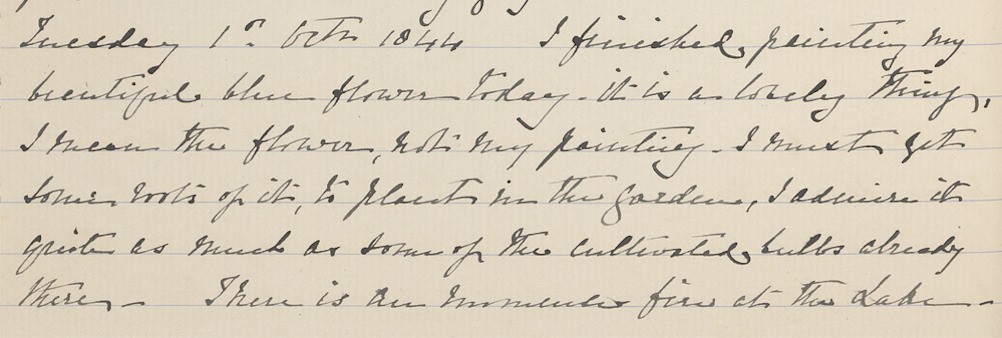 Tuesday 1st Octr 1844 I finished painting my
beautiful blue flower today - it is a lovely thing,
I mean the flower, not my painting - I must get
some roots of it, to plant in the garden, I admire it
quite as much as some of the cultivated bulbs already
there - There is an immense fire at the Lake -